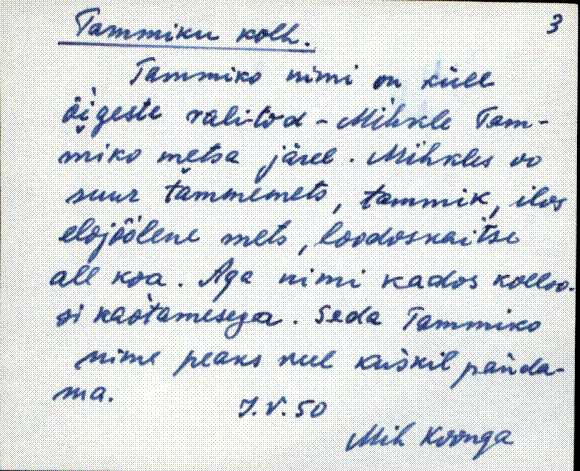 3
Tammiku kolh.
Tammiko nimi on küll
õigeste valitod - Mihkle Tam-
miko metsa järel. Mihkles oo
suur tammemets, tammik, ilos
elojõõlene mets, loodoskaitse
all koa. Aga nimi kados kolloo-
si kaotamesega. Seda Tammiko
nime peaks veel kuskil panda-
ma.
J. V. 50
Mih Koonga